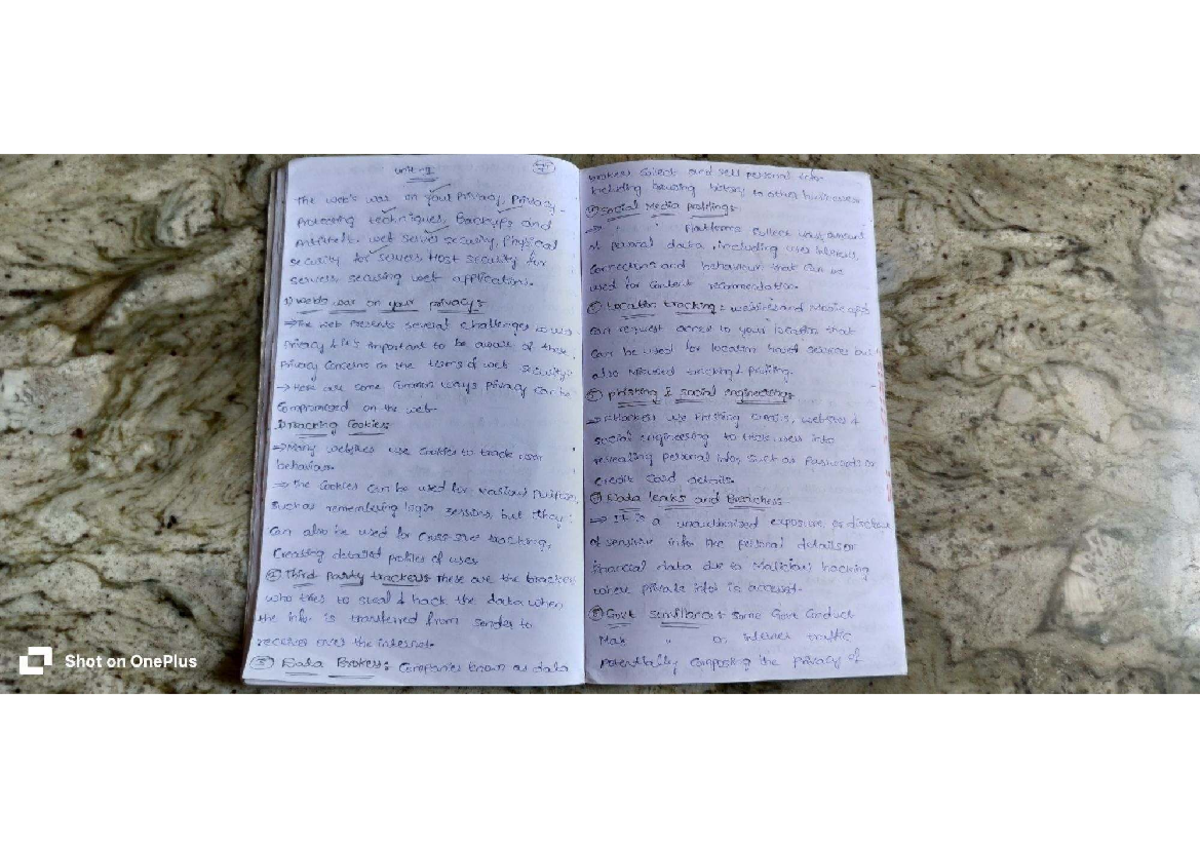 Unit-II
The web's war on your privacy, privacy-
Protecting techniques, Backups and
Antitheft, web server security, Physical
security for servers, Host security for
servers, securing web applications.
1) web's war on your privacy:
→ The web presents several challenges
privacy & it's important to be aware of these
privacy concerns in the of web security:
→ Here are some common ways privacy can be
compromised on the web.
1) Tracking Cookies:
→ Many websites use cookies to track user
behaviour.
→ The cookies can be used for various purposes,
such as remembering login sessions, but they
can also be used for cross-site tracking,
creating detailed profiles of user
② Third Party trackers: These are the trackers
who tries to steal & hack the data when
the info is transferred from sender to
receiver over the internet.
③ Data Brokers: Companies known as data
brokers collect and sell personal info
including browsing history to other businesses
④ Social Media profilings:
→ " " Platforms collect amount
of personal data, including interests,
connections and behaviour that can be
used for content recommendation.
⑤ Location tracking: websites and Mobile apps
can request access to your location that
can be used for location based services but
also misused tracking & profiling.
⑥ phishing & social engineering:
→ use Phishing emails, websites &
social engineering to trick users into
revealing personal info, such as Passwords or
credit card details.
⑦ Data leaks and Breaches:
→ It is a unauthorized exposure or disclosure
of sensitive info like personal details or
financial data due to Malicious hacking
where private info is
⑧ Govt surveillance: some Govt Conduct
" on internet traffic
potentially the privacy of
Shot on OnePlus